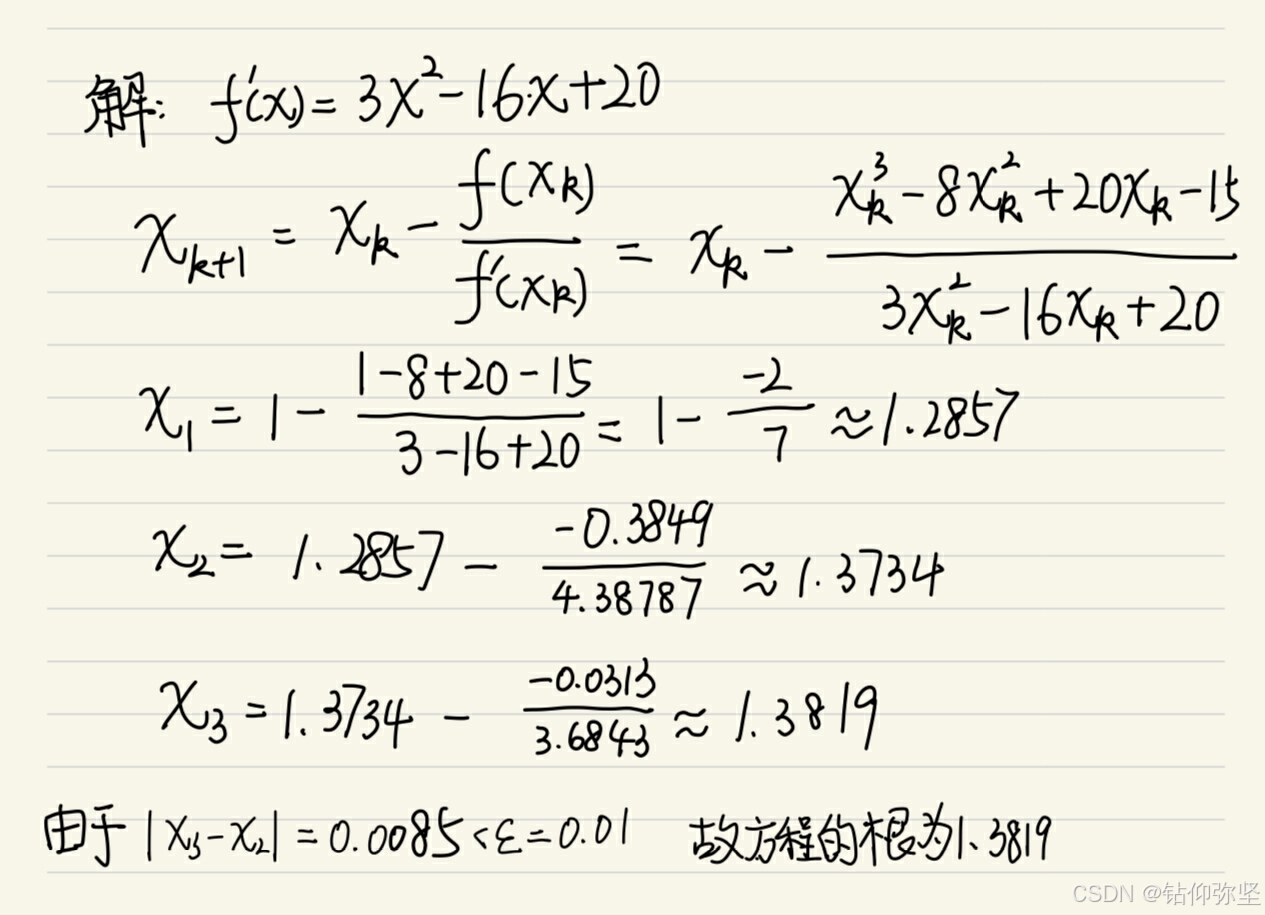 解: f'(x) = 3x² - 16x + 20
x_{k+1} = x_k - \frac{f(x_k)}{f'(x_k)} = x_k - \frac{x_k^3 - 8x_k^2 + 20x_k - 15}{3x_k^2 - 16x_k + 20}
x_1 = 1 - \frac{1-8+20-15}{3-16+20} = 1 - \frac{-2}{7} ≈ 1.2857
x_2 = 1.2857 - \frac{-0.3849}{4.38787} ≈ 1.3734
x_3 = 1.3734 - \frac{-0.0313}{3.6843} ≈ 1.3819
由于 |x_3 - x_2| = 0.0085 < ε = 0.01 故方程的根为1.3819
CSDN @钻仰弥坚